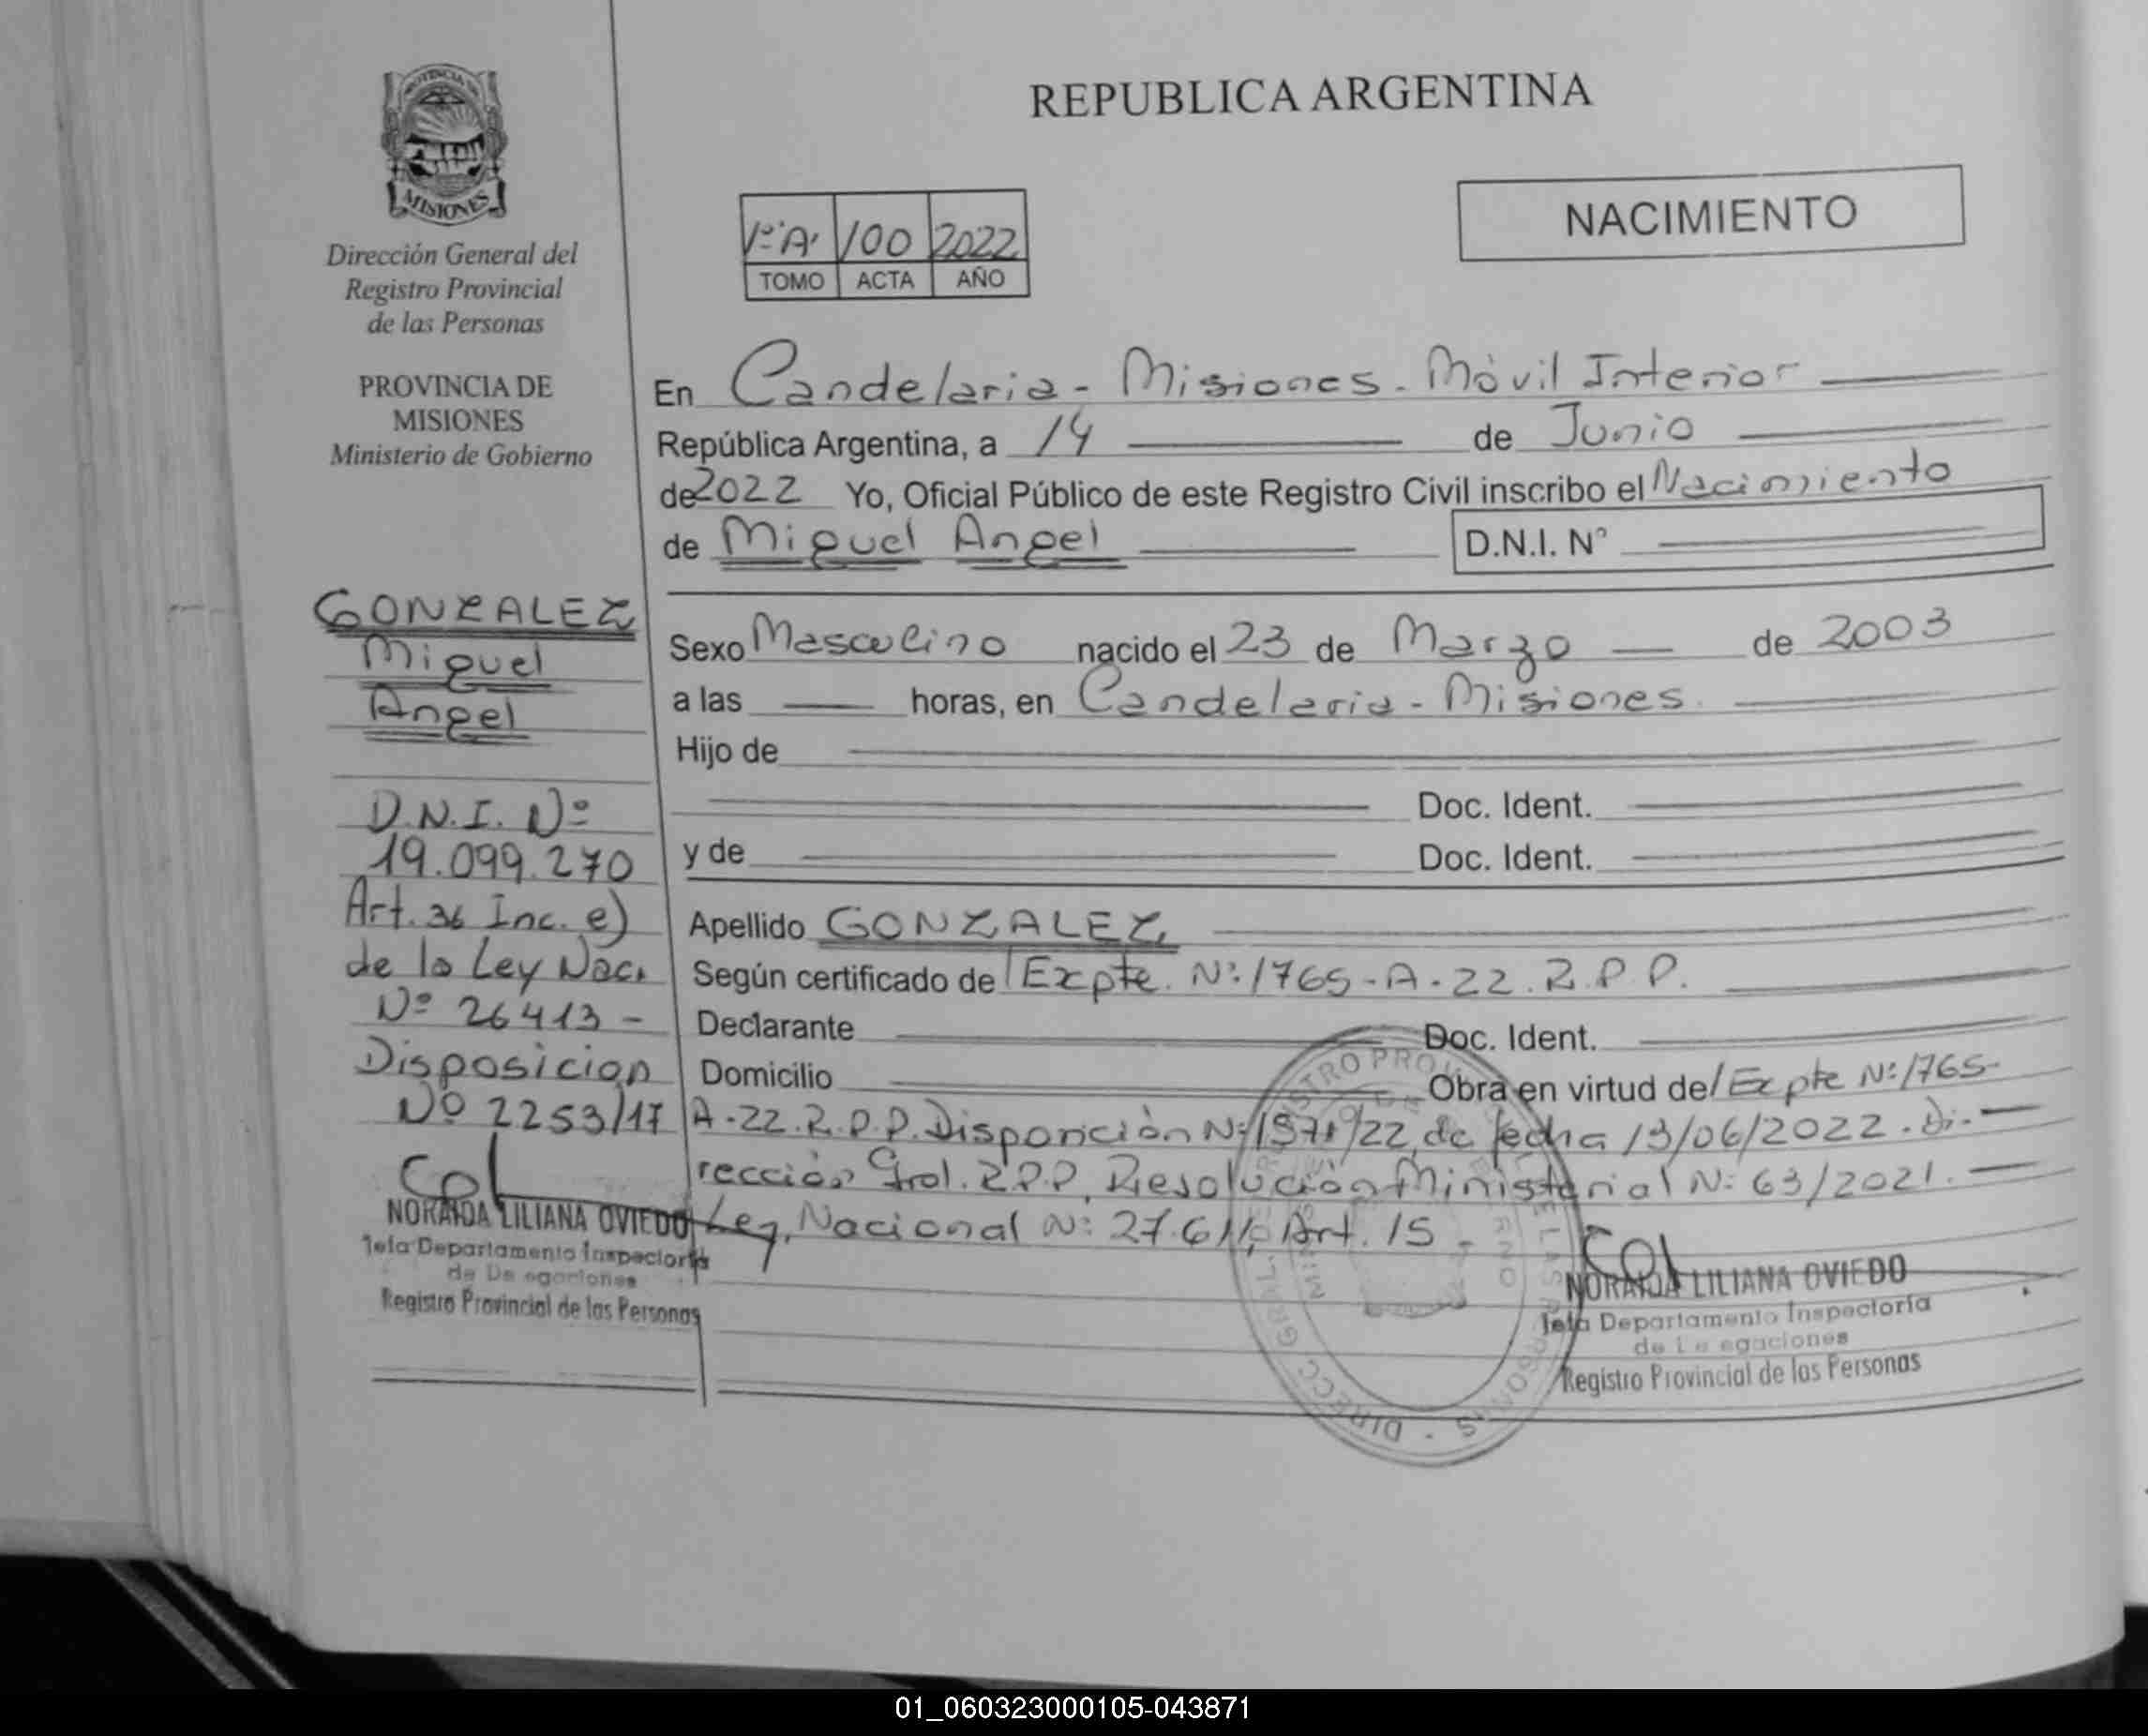 PROVINCIA DE
MISIONES
Dirección General del
Registro Provincial
de las Personas
PROVINCIA DE
MISIONES
Ministerio de Gobierno
GONZALEZ
Miguel
Angel
D.N.I. Nº
19.099.270
Art. 36 Inc. e)
de la Ley Nac.
Nº 26413 -
Disposicion
Nº 2253/17
NORAIDA LILIANA OVIEDO
Jefa Departamento Inspectoría
de Delegaciones
Registro Provincial de las Personas
REPUBLICA ARGENTINA
NACIMIENTO
1º"A" 100 2022
TOMO ACTA AÑO
En Candelaria - Misiones - Móvil Interior
República Argentina, a 14 de Junio
de 2022 Yo, Oficial Público de este Registro Civil inscribo el Nacimiento
de Miguel Angel D.N.I. N°
Sexo Masculino nacido el 23 de Marzo de 2003
a las horas, en Candelaria - Misiones.
Hijo de
Doc. Ident.
y de Doc. Ident.
Apellido GONZALEZ
Según certificado de Expte. Nº:1765-A-22.R.P.P.
Declarante Doc. Ident.
Domicilio Obra en virtud de Expte Nº:1765-
A-22.R.P.P. Disposición Nº /22, de fecha 13/06/2022. Di-
rección Gral. R.P.P. Resolución Ministerial Nº: 63/2021.
Ley, Nacional Nº: 27.611, Art. 15 -
NORAIDA LILIANA OVIEDO
Jefa Departamento Inspectoría
de Delegaciones
Registro Provincial de las Personas
01_060323000105-043871